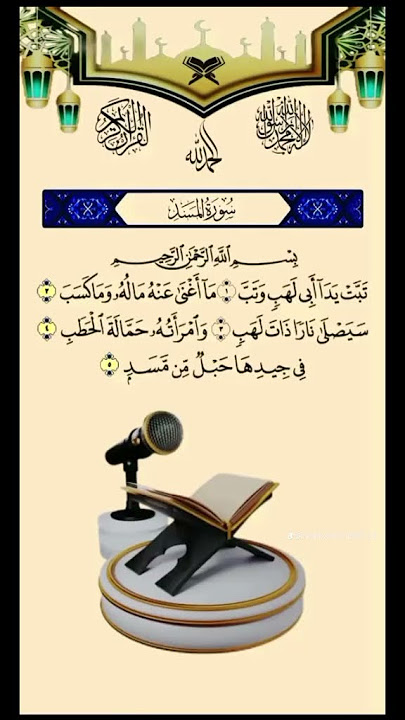 القرآن الكريم
الحمد لله
لا إله إلا الله محمد رسول الله
سُورَةُ المَسَدِ
بِسْمِ ٱللَّهِ ٱلرَّحْمَٰنِ ٱلرَّحِيمِ
تَبَّتْ يَدَآ أَبِى لَهَبٍ وَتَبَّ ١ مَآ أَغْنَىٰ عَنْهُ مَالُهُۥ وَمَا كَسَبَ ٢
سَيَصْلَىٰ نَارًا ذَاتَ لَهَبٍ ٣ وَٱمْرَأَتُهُۥ حَمَّالَةَ ٱلْحَطَبِ ٤
فِى جِيدِهَا حَبْلٌ مِّن مَّسَدٍۭ ٥